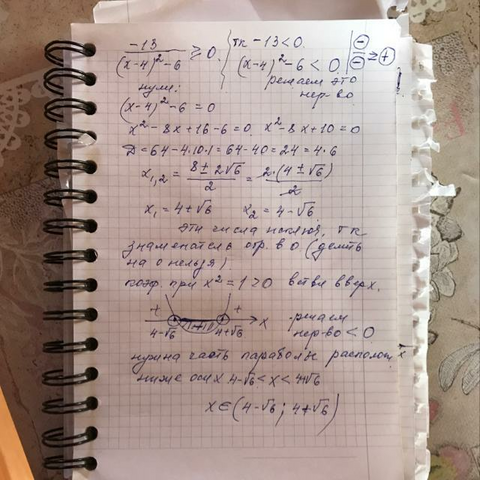 -13 / ((x-4)²-6) ≥ 0. { тк -13<0. (x-4)²-6 < 0 | ⊖/⊖ ≥ ⊕
решаем это
нер-во
нули:
(x-4)²-6=0
x²-8x+16-6=0, x²-8x+10=0
D=64-4.10.1=64-40=24=4.6
x₁,₂ = (8±2√6)/2 = 2.(4±√6)/2
x₁=4+√6 x₂=4-√6
эти числа исключ, тк
знаменатель обр. в 0 (делить
на 0 нельзя)
коэф. при x²=1>0 ветви вверх.
+ +
4-√6 4+√6 x
решаем
нер-во <0
нужна часть параболы располож
ниже оси x 4-√6<x<4+√6
x∈(4-√6; 4+√6)